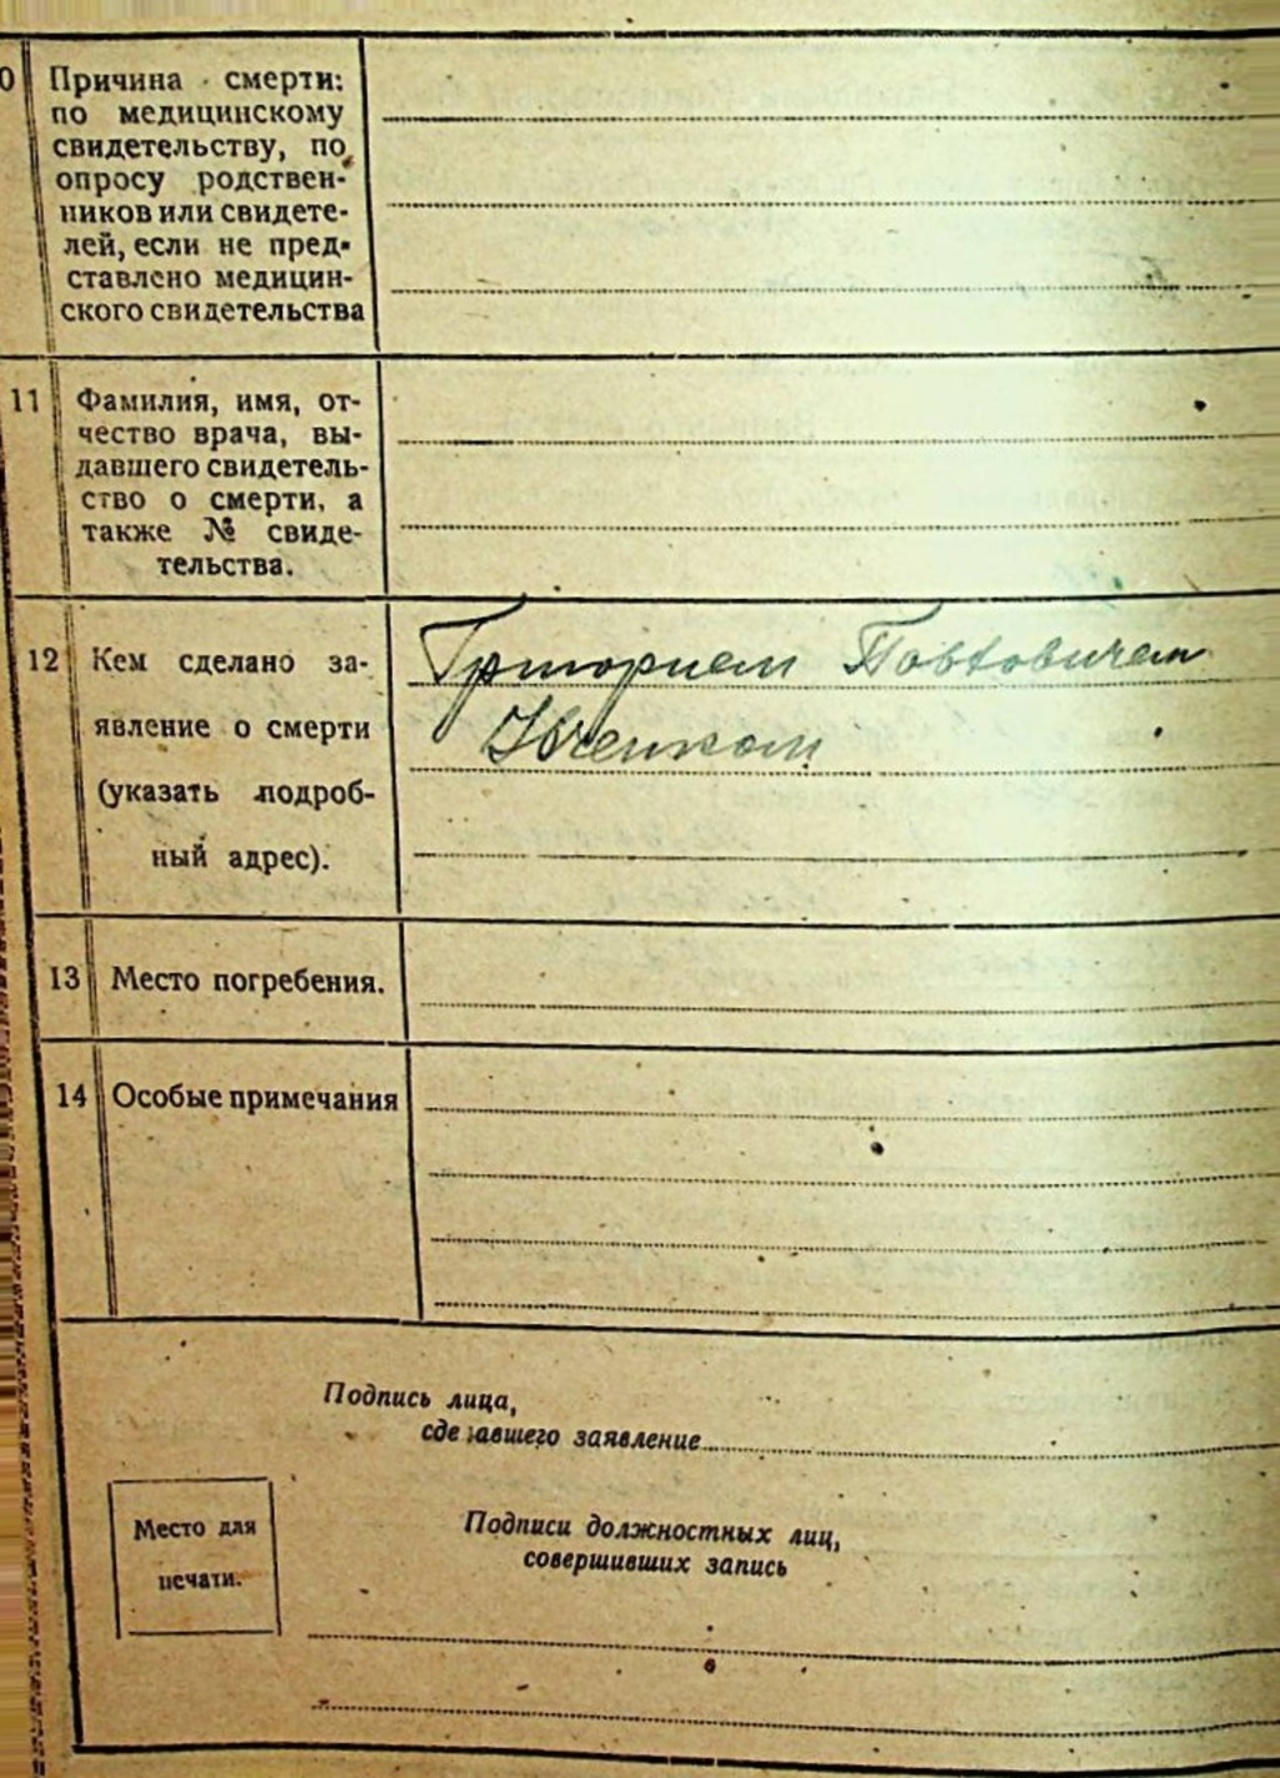 0 Причина смерти:
по медицинскому
свидетельству, по
опросу родствен-
ников или свидете-
лей, если не пред-
ставлено медицин-
ского свидетельства
11 Фамилия, имя, от-
чество врача, вы-
давшего свидетель-
ство о смерти, а
также № свиде-
тельства.
12 Кем сделано за-
явление о смерти
(указать подроб-
ный адрес).
Григорием
13 Место погребения.
14 Особые примечания
Подпись лица,
сделавшего заявление
Место для
печати.
Подписи должностных лиц,
совершивших запись